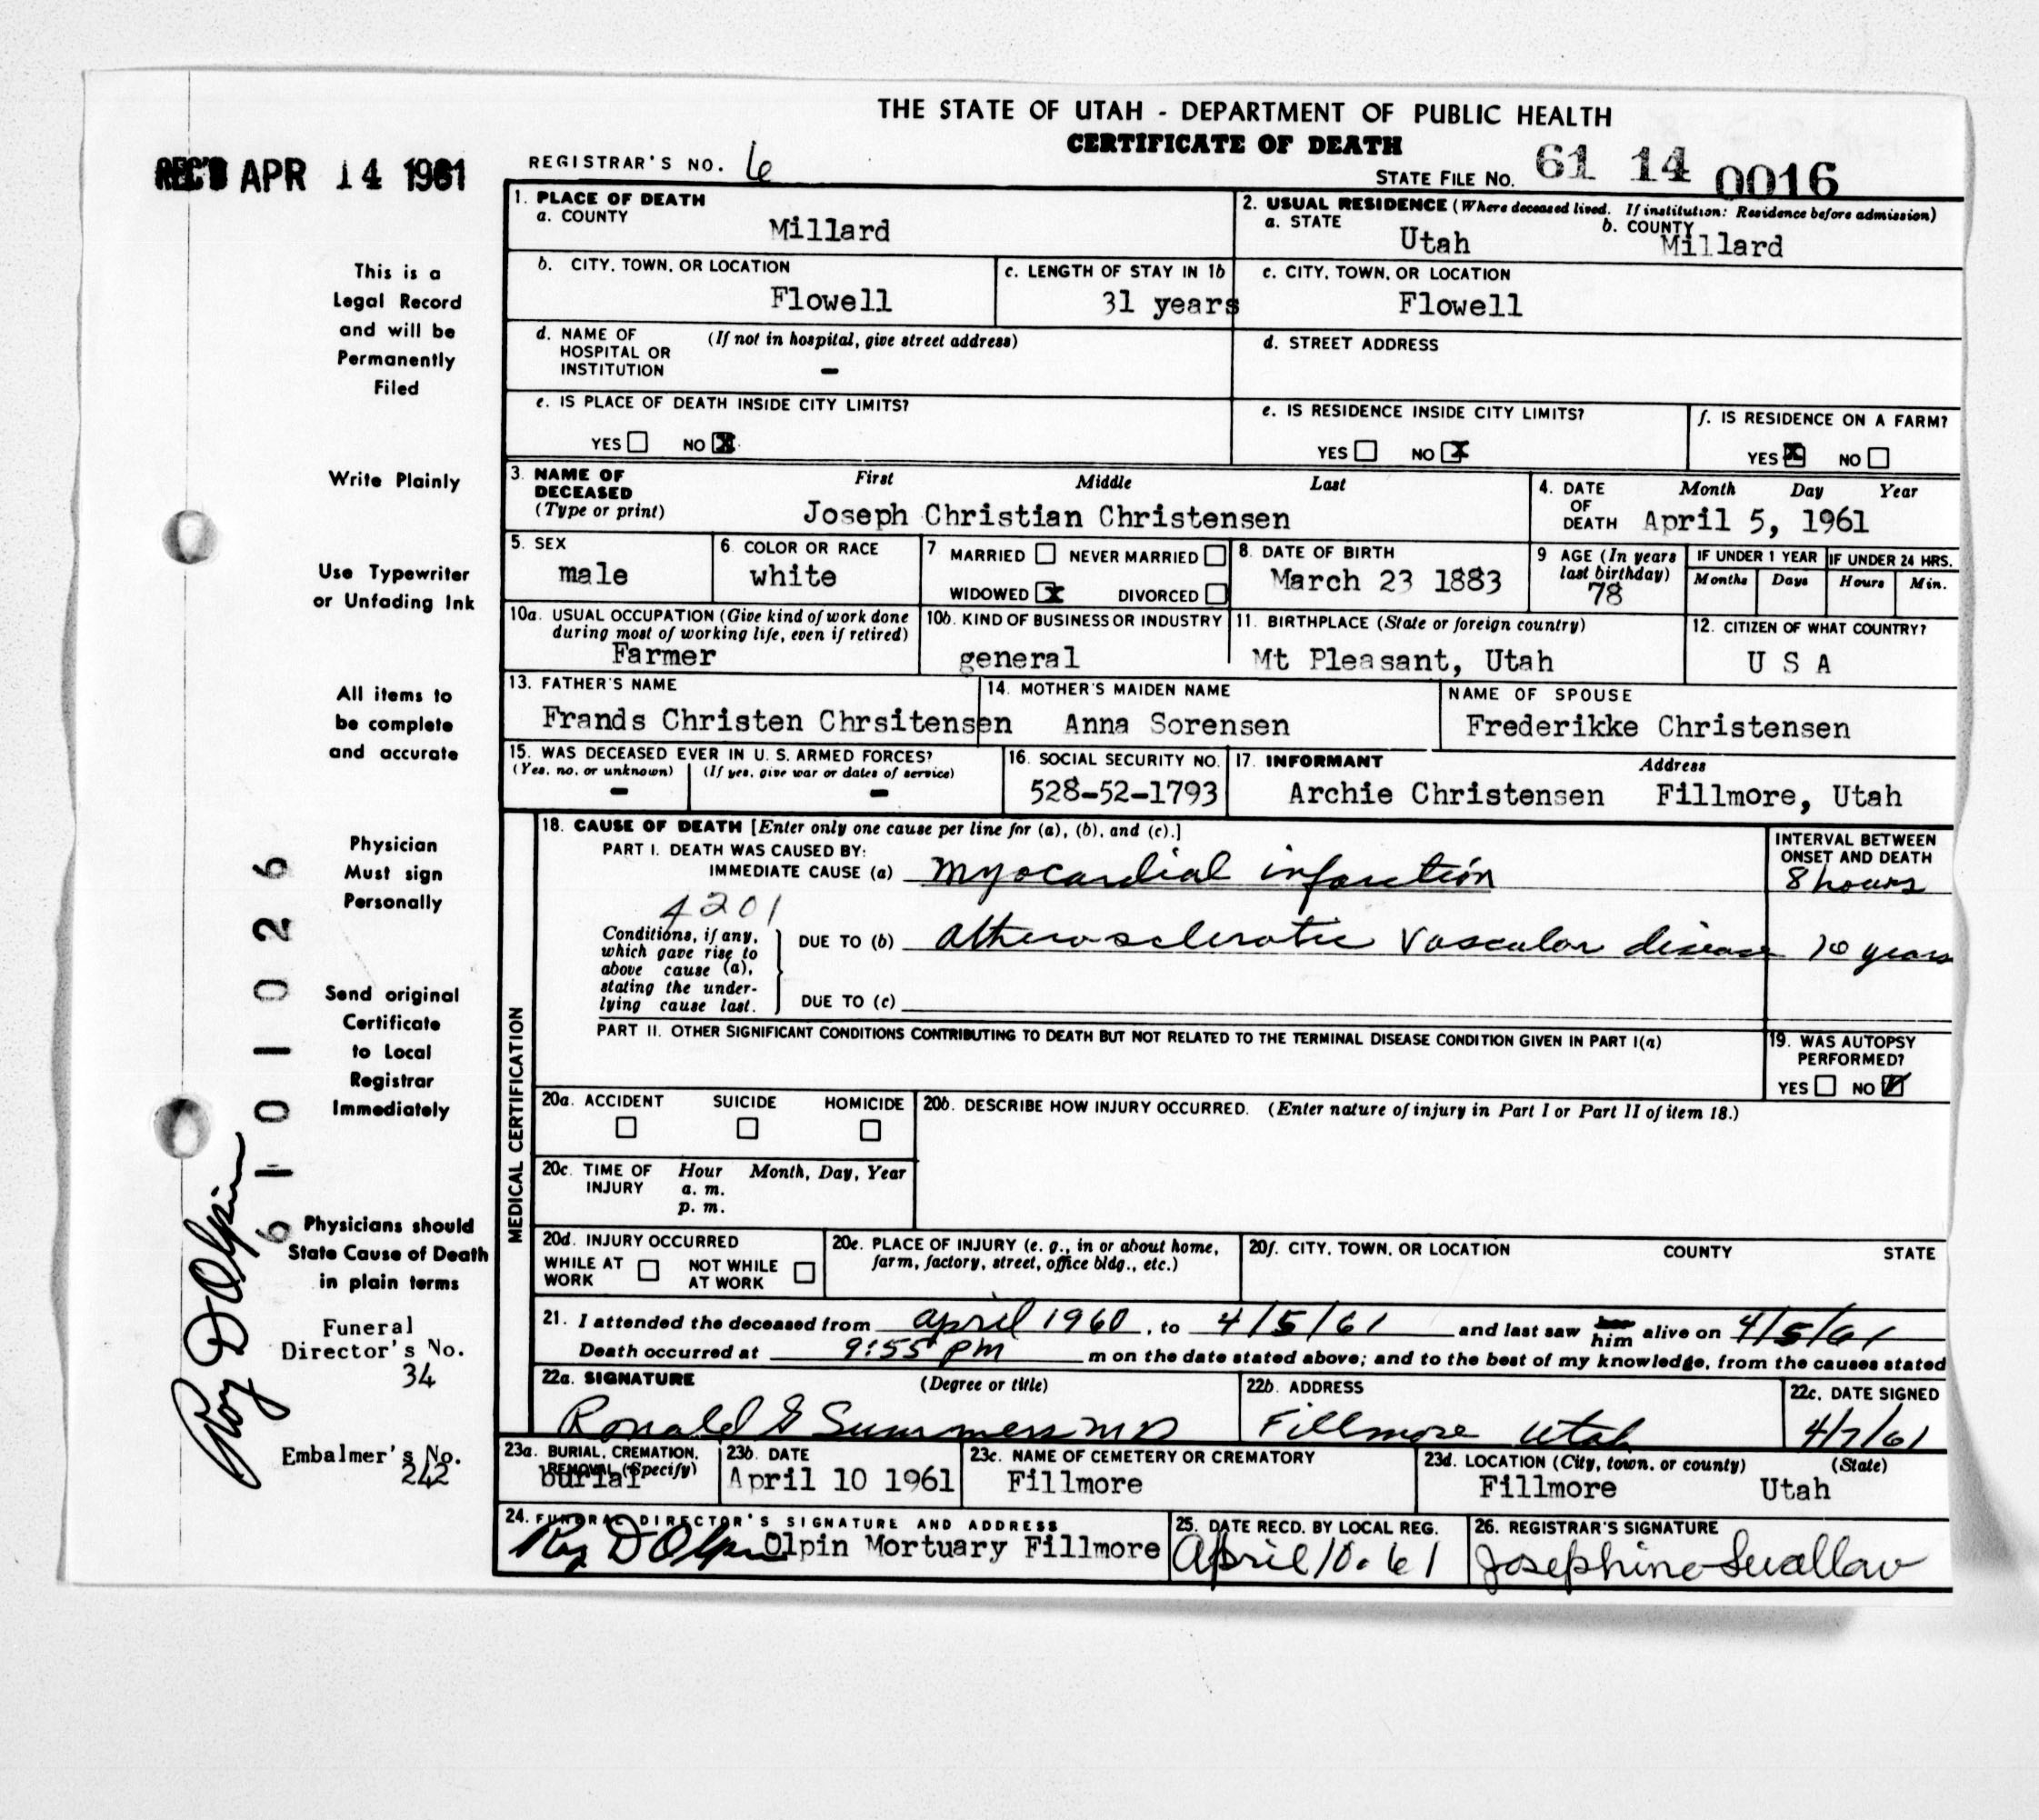 THE STATE OF UTAH - DEPARTMENT OF PUBLIC HEALTH
CERTIFICATE OF DEATH
REC'D APR 14 1961
REGISTRAR'S NO. 6
STATE FILE NO. 61 14 0016
1. PLACE OF DEATH
a. COUNTY Millard
2. USUAL RESIDENCE (Where deceased lived. If institution: Residence before admission)
a. STATE Utah b. COUNTY Millard
b. CITY, TOWN, OR LOCATION Flowell
c. LENGTH OF STAY IN 1b 31 years
c. CITY, TOWN, OR LOCATION Flowell
d. NAME OF HOSPITAL OR INSTITUTION (If not in hospital, give street address) -
d. STREET ADDRESS
e. IS PLACE OF DEATH INSIDE CITY LIMITS?
YES NO X
e. IS RESIDENCE INSIDE CITY LIMITS?
YES NO X
f. IS RESIDENCE ON A FARM?
YES X NO
3. NAME OF DECEASED (Type or print) First Middle Last
Joseph Christian Christensen
4. DATE OF DEATH Month Day Year
April 5, 1961
5. SEX male
6. COLOR OR RACE white
7. MARRIED NEVER MARRIED
WIDOWED X DIVORCED
8. DATE OF BIRTH March 23 1883
9 AGE (In years last birthday) 78
IF UNDER 1 YEAR Months Days
IF UNDER 24 HRS. Hours Min.
10a. USUAL OCCUPATION (Give kind of work done during most of working life, even if retired)
Farmer
10b. KIND OF BUSINESS OR INDUSTRY
general
11. BIRTHPLACE (State or foreign country)
Mt Pleasant, Utah
12. CITIZEN OF WHAT COUNTRY?
U S A
13. FATHER'S NAME
Frands Christen Chrsitensen
14. MOTHER'S MAIDEN NAME
Anna Sorensen
NAME OF SPOUSE
Frederikke Christensen
15. WAS DECEASED EVER IN U. S. ARMED FORCES?
(Yes, no, or unknown) - (If yes, give war or dates of service) -
16. SOCIAL SECURITY NO.
528-52-1793
17. INFORMANT Address
Archie Christensen Fillmore, Utah
MEDICAL CERTIFICATION
18. CAUSE OF DEATH [Enter only one cause per line for (a), (b), and (c).]
PART I. DEATH WAS CAUSED BY:
IMMEDIATE CAUSE (a) Myocardial infarction
INTERVAL BETWEEN ONSET AND DEATH
8 hours
4201
Conditions, if any, which gave rise to above cause (a), stating the underlying cause last.
DUE TO (b) atherosclerotic vascular disease 10 years
DUE TO (c)
PART II. OTHER SIGNIFICANT CONDITIONS CONTRIBUTING TO DEATH BUT NOT RELATED TO THE TERMINAL DISEASE CONDITION GIVEN IN PART I(a)
19. WAS AUTOPSY PERFORMED?
YES NO ✓
20a. ACCIDENT SUICIDE HOMICIDE
20b. DESCRIBE HOW INJURY OCCURRED. (Enter nature of injury in Part I or Part II of item 18.)
20c. TIME OF INJURY Hour Month, Day, Year
a. m.
p. m.
20d. INJURY OCCURRED
WHILE AT WORK NOT WHILE AT WORK
20e. PLACE OF INJURY (e. g., in or about home, farm, factory, street, office bldg., etc.)
20f. CITY, TOWN, OR LOCATION COUNTY STATE
21. I attended the deceased from april 1960, to 4/5/61 and last saw him alive on 4/5/61
Death occurred at 9:55 PM m on the date stated above; and to the best of my knowledge, from the causes stated
22a. SIGNATURE (Degree or title)
Ronald G Summers MD
22b. ADDRESS
Fillmore Utah
22c. DATE SIGNED
4/7/61
23a. BURIAL, CREMATION, REMOVAL (Specify)
burial
23b. DATE
April 10 1961
23c. NAME OF CEMETERY OR CREMATORY
Fillmore
23d. LOCATION (City, town, or county) (State)
Fillmore Utah
24. FUNERAL DIRECTOR'S SIGNATURE AND ADDRESS
Roy D Olpin Olpin Mortuary Fillmore
25. DATE RECD. BY LOCAL REG.
April 10. 61
26. REGISTRAR'S SIGNATURE
Josephine Swallow
This is a
Legal Record
and will be
Permanently
Filed
Write Plainly
Use Typewriter
or Unfading Ink
All items to
be complete
and accurate
Physician
Must sign
Personally
Send original
Certificate
to Local
Registrar
Immediately
Physicians should
State Cause of Death
in plain terms
Funeral
Director's No.
34
Embalmer's No.
242
6101026
Roy D Olpin